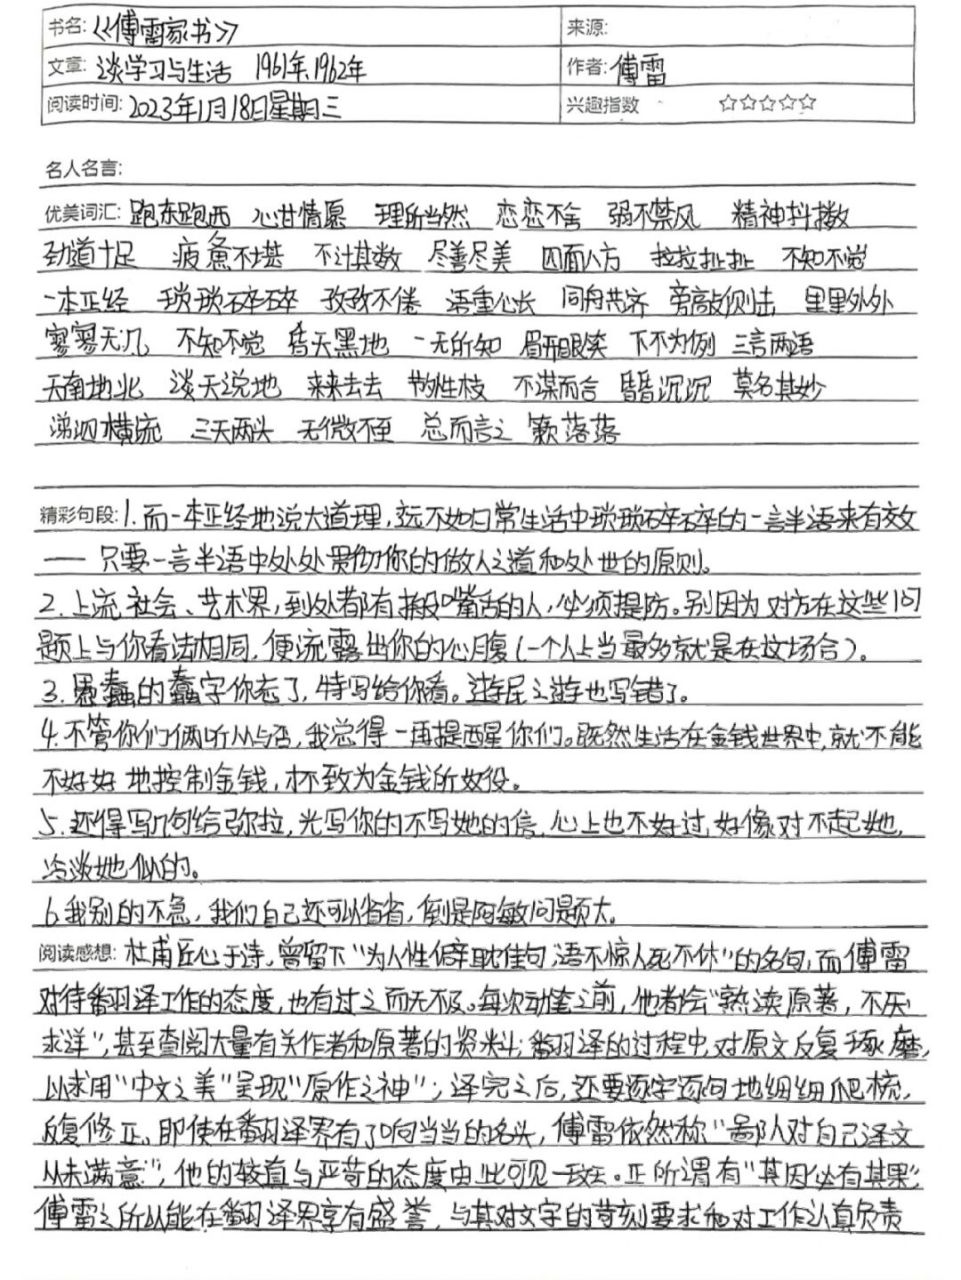 书名: 《傅雷家书》 来源:
文章: 谈学习与生活 1961年、1962年 作者: 傅雷
阅读时间: 2023年1月18日星期三 兴趣指数 ☆☆☆☆☆
名人名言:
优美词汇: 跑东跑西 心甘情愿 理所当然 恋恋不舍 弱不禁风 精神抖擞
劲道十足 疲惫不堪 不计其数 尽善尽美 四面八方 拉拉扯扯 不知不觉
一本正经 琐琐碎碎 孜孜不倦 语重心长 同舟共济 旁敲侧击 里里外外
寥寥无几 不知不觉 昏天黑地 一无所知 眉开眼笑 下不为例 三言两语
天南地北 谈天说地 来来去去 节外生枝 不谋而合 昏昏沉沉 莫名其妙
涕泗横流 三天两头 无微不至 总而言之 落落
精彩句段: 1. 而一本正经地说大道理,远不如日常生活中琐琐碎碎的一言半语来有效
—— 只要一言半语中处处贯彻你的做人之道和处世的原则。
2. 上流社会、艺术界,到处都有搬嘴舌的人,必须提防。别因为对方在这些问
题上与你看法相同,便流露出你的心腹(一个人上当最多就是在这场合)。
3. 愚蠢的蠢字你忘了,特写给你看。逆民之逆也写错了。
4. 不管你们俩听从与否,我总得一再提醒你们。既然生活在金钱世界中,就不能
不好好地控制金钱,才不致为金钱所奴役。
5. 还得写几句给弥拉,光写你的不写她的信,心上也不好过,好像对不起她,
冷淡她似的。
6. 我别的不急,我们自己还可以省省,倒是阿敏问题大。
阅读感想: 杜甫匠心于诗,曾留下“为人性僻耽佳句,语不惊人死不休”的名句,而傅雷
对待翻译工作的态度,也有过之而无不及。每次动笔之前,他都会“熟读原著,不厌
求详”,甚至查阅大量有关作者和原著的资料;翻译的过程中,对原文反复琢磨,
以求用“中文之美”呈现“原作之神”;译完之后,还要逐字逐句地细细爬梳,
反复修正。即使在翻译界有了响当当的名头,傅雷依然称“鄙人对自己译文
从未满意”,他的较真与严苛的态度由此可见一斑。正所谓有“其因必有其果”,
傅雷之所以能在翻译界享有盛誉,与其对文字的苛刻要求和对工作认真负责